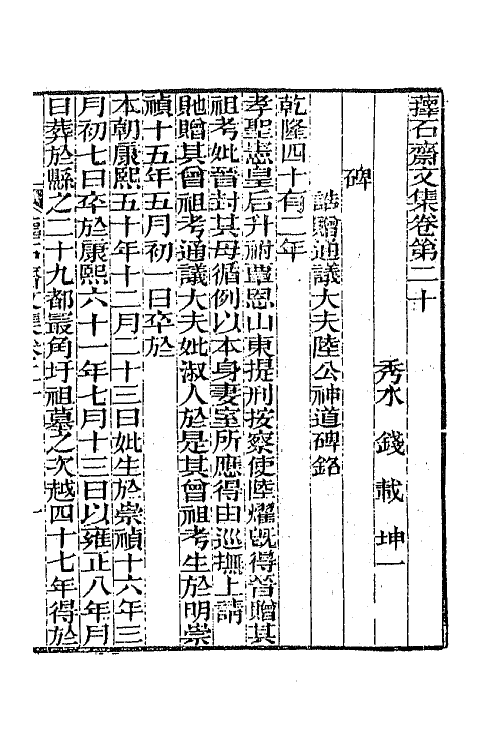 蘀石齋文集卷第二十
秀水 錢載 坤一
碑
誥贈通議大夫陸公神道碑銘
乾隆四十有二年
孝聖憲皇后升祔覃恩山東提刑按察使陸燿旣得晉贈其
祖考妣晉封其母循例以本身妻室所應得由巡撫上請
貤贈其曾祖考通議大夫妣淑人於是其曾祖考生於明崇
禎十五年五月初一日卒於
本朝康熙五十年十二月二十三日妣生於崇禎十六年三
月初七日卒於康熙六十一年七月十三日以雍正八年月
日葬於縣之二十九都叢角圩祖墓之次越四十七年得於